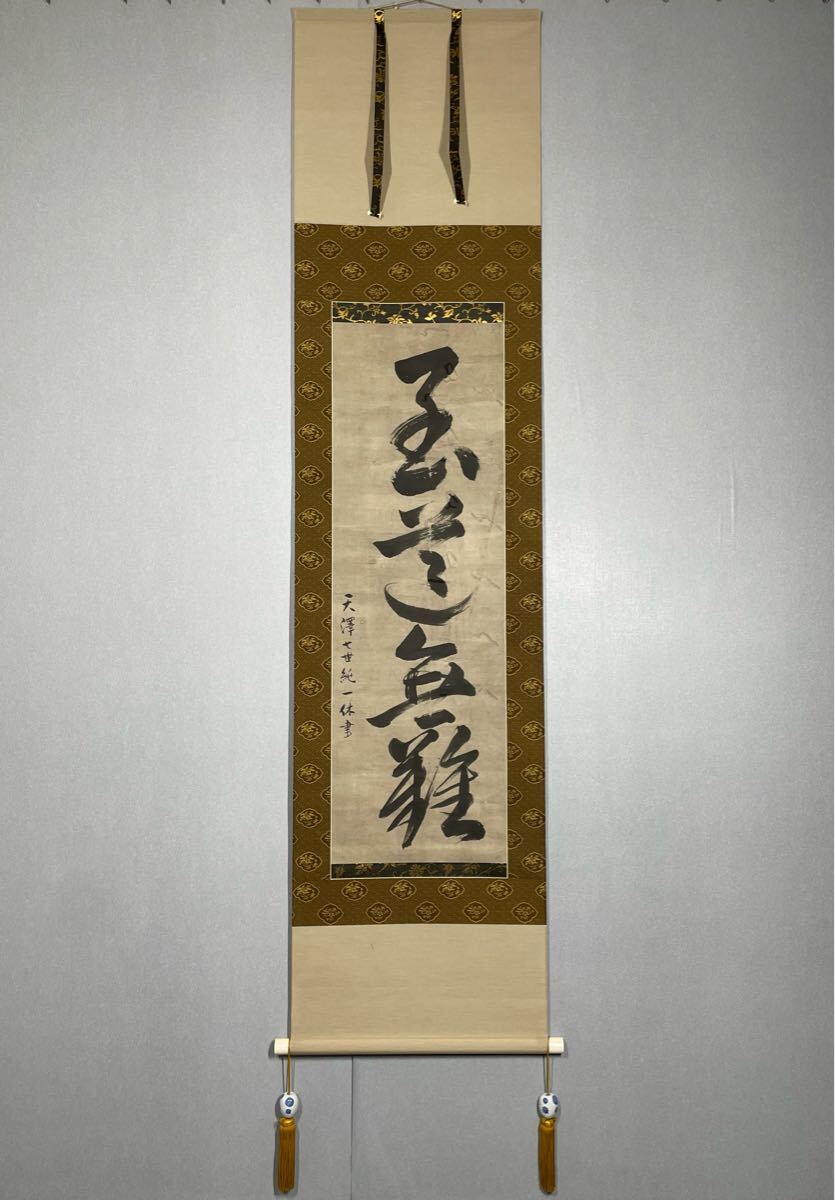 至道無難
天澤七世純一休書